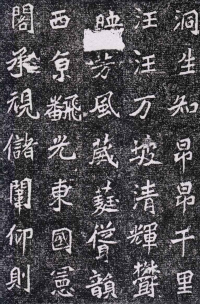 洞生知昂昂千里
汪汪万坡清輝欝
映芳風葳蕤贊韻
西京飜光東國憲
閣承視儲闈仰則